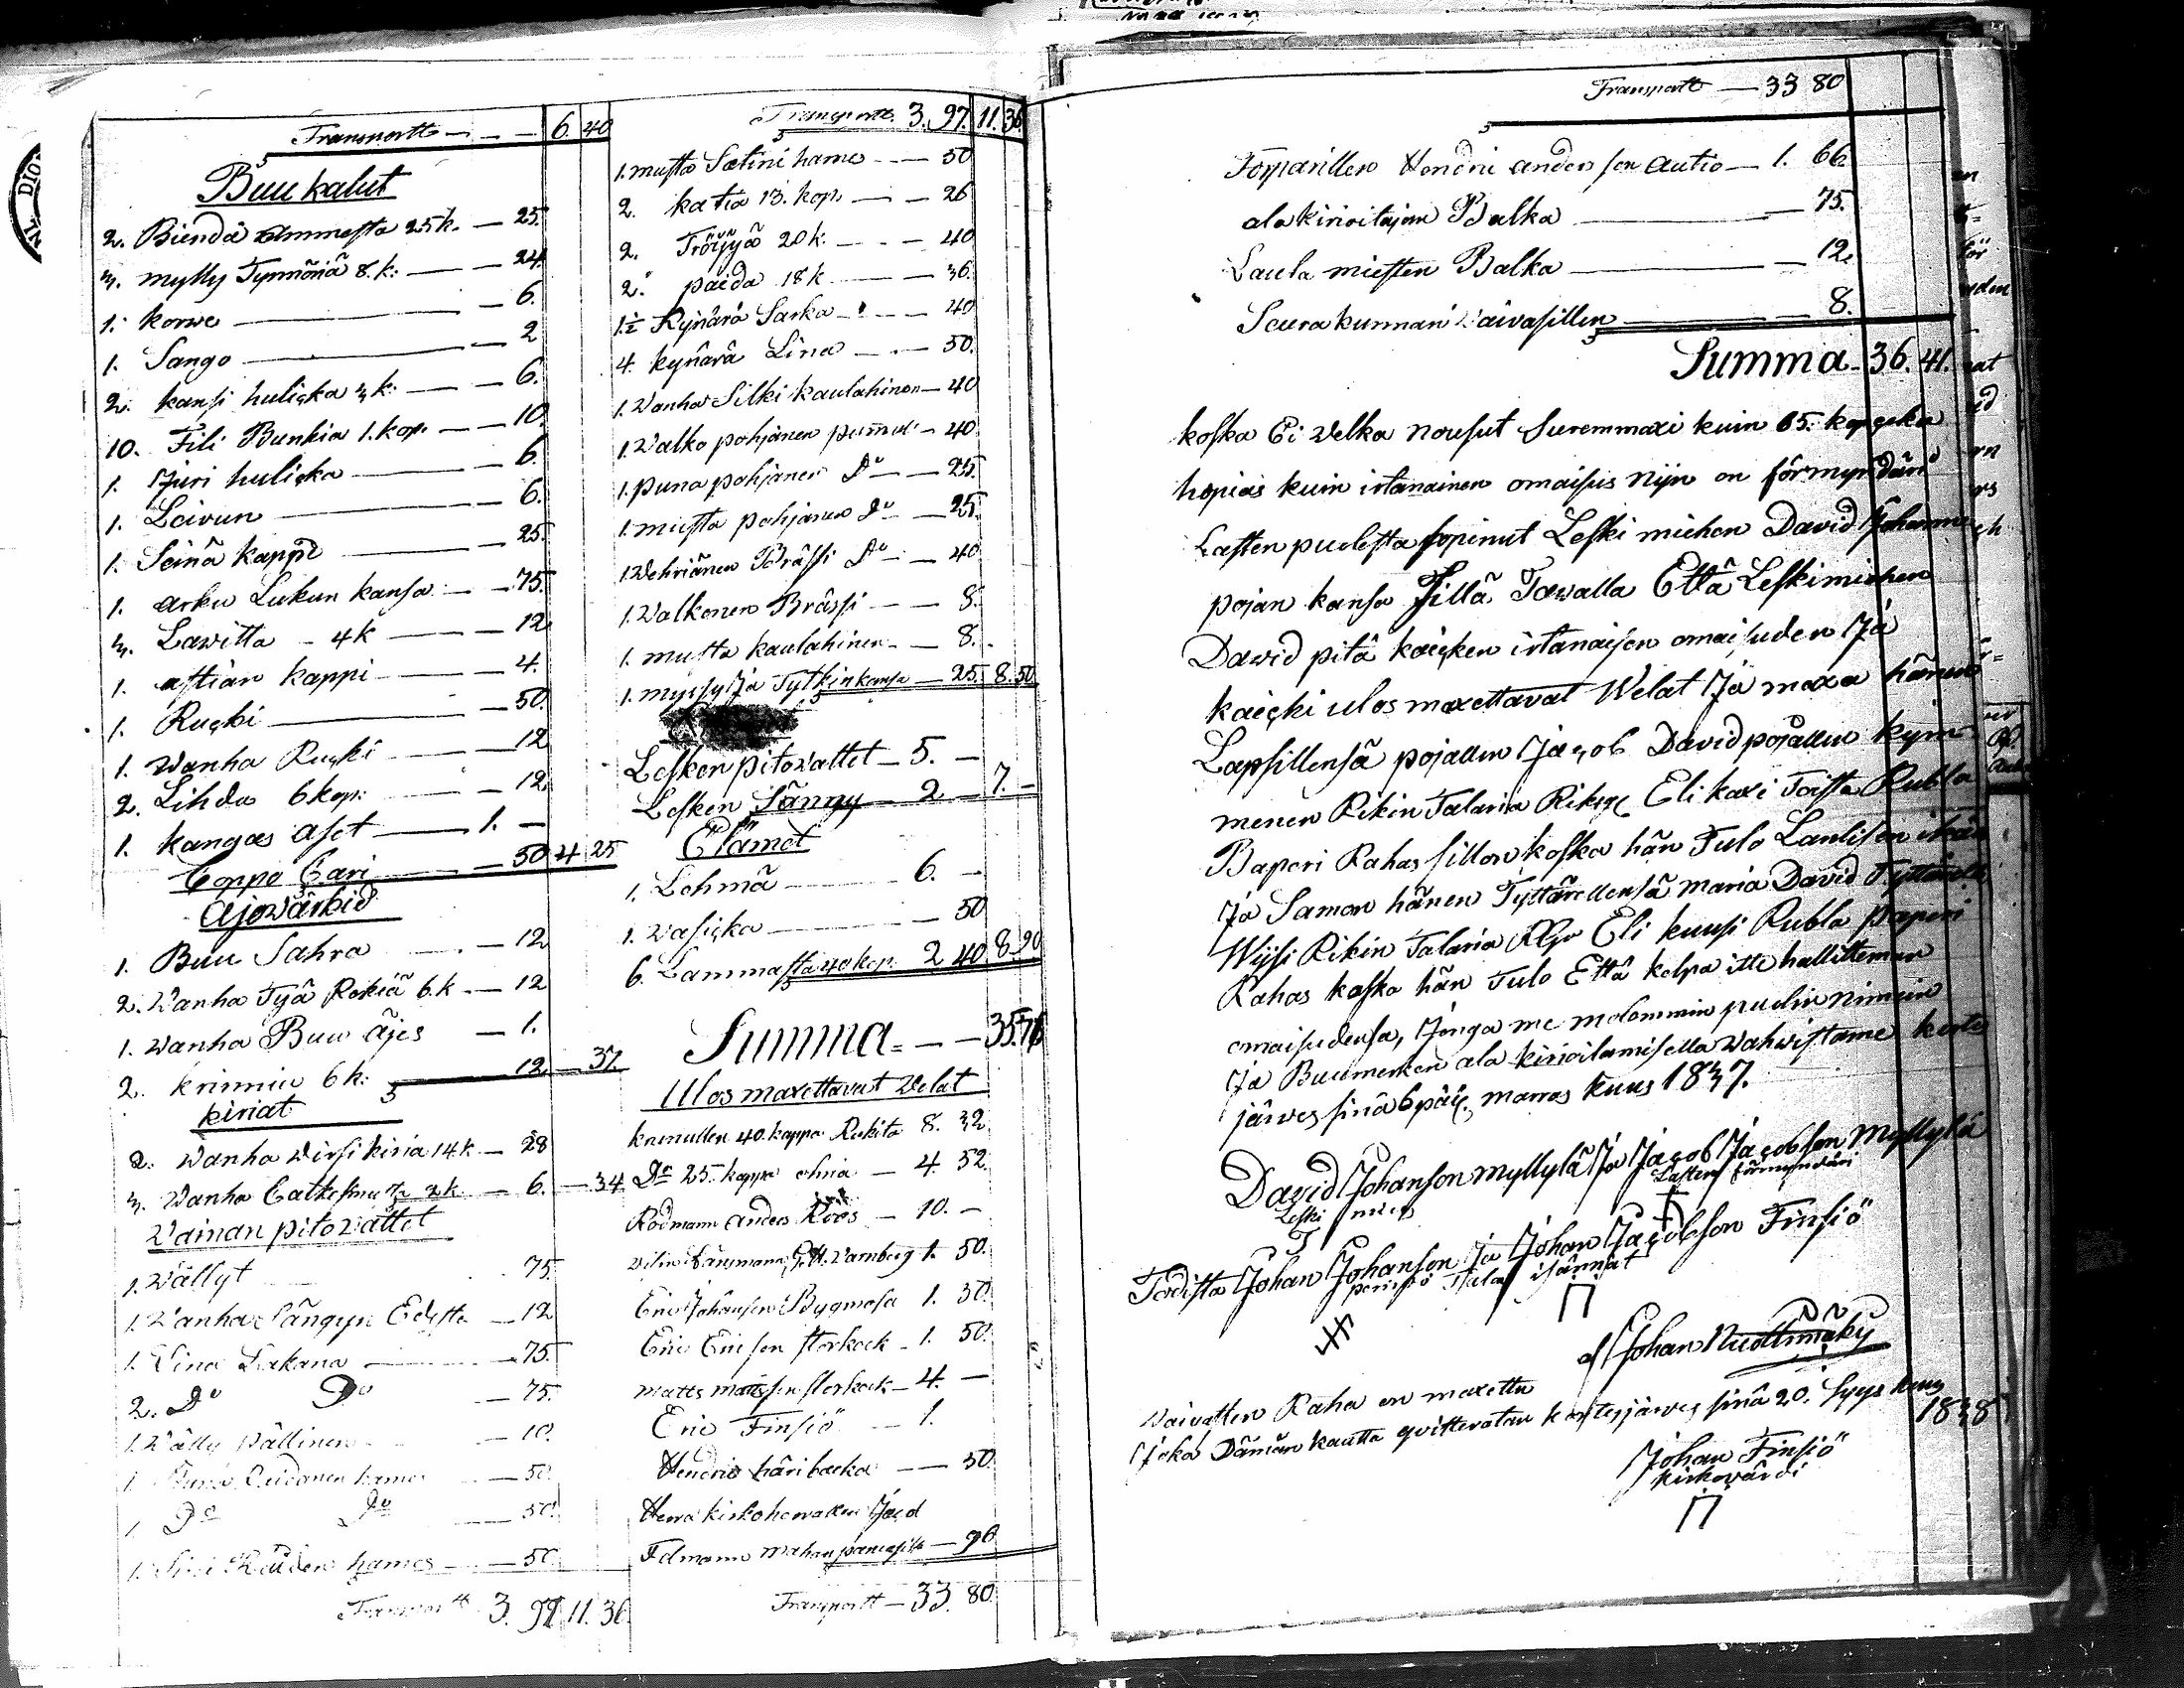 Transportt — 6. 40
Buu kalut
2. Biendä ammesta 25 k. — 25.
3. mylly Tynnöriä 8. k: — 24.
1. korwo — 6.
1. Sango — 2
2. kansi huliçka 3 k: — 6.
10. Fili Bunkia 1. kop. — 10.
1. Juri huliçka — 6.
1. Leivun — 6.
1. Seinä kappi — 25.
1. arku Lukun kansa — 75.
3. Lawitta - 4 k — 12.
1. astian kappi — 4.
1. Ruçki — 50.
1. wanha Ruçki — 12
2. Lihda 6 kop: — 12.
1. kangas aset — 1. —
Coppo Cari — 50 4 25
Ajowärkid
1. Buu Sahra — 12
2. Wanha Tyä Rekiä 6. k — 12
1. wanha Buu äjes — 1.
2. krimiu 6 k: — 12 — 37.
kiriat
2. Wanha wirsi kiria 14 k — 28
3. Wanha Catkesmusta 2 k — 6. — 34
Vaiman pitovattet
1. Vällyt 75.
1. Wanha Sängyn Edysta — 12
1. Lina Lakana — 75.
2. Do Do — 75.
1. Välly pällinen — 10.
1. hames — 50.
1. Do Do — 50.
1. Sini hames — 50.
Transportt 3. 97 11. 36
Transportt 3. 97. 11. 36
1. musta Satini hame — 50
2. katia 13. kop. — 26
2. Tröijyä 20 k: — 40
2. paida 18 k — 36.
1½ Kynärä Sarka — 40
4. kynärä Lina — 50.
1. Wanha Silki kaulahinen — 40
1. Walko pohjanen — 40.
1. puna pohjanen Do — 25.
1. musta pohjanen Do — 25.
1. Wehriänen Brässi Do — 40
1. Walkonen Brässi — 8.
1. musta kaulahinen — 8.
1. myssy Ja Tytkin kansa — 25. 8. 50
Lesken pitovattet — 5. —
Lesken Sängy — 2 — 7. —
Elämet
1. Lehmä — 6. —
1. vasiçka — 50
6. Lammasta 40 kop. 2 40. 8. 90.
Summa — 35. 76
Ulos maxettavat Velat
krunullen 40. kappa Rukita 8. 32.
Do 25. kappa ohria — 4. 52.
Rodmann anders Röös — 10. —
Länsmann Vamberg 1. 50.
Eric Johansen Bygmesa 1. 30.
Eric Ericsen storkack — 1. 50.
matts mattsen storkack — 4. —
Eric Finsiö — 1.
Hendric häribacka — 50.
Herra kirkoherra
Fdmann mahan panesista — 96
Transportt — 33. 80.
Transportt — 33 80
Henric andersen autio — 1. 66.
ala kirioitajan Balka — 75.
Laula miesten Balka — 12.
Seurakunnan Vaivasillen — 8.
Summa — 36. 41.
koska Ei velka nousut Suremmaxi kuin 65. kopeka
hopias kuin irtanainen omaisus Nijn on förmyndäri
Lasten puolesta sopinut Leski miehen David Johannes
pojan kansa Sillä Tawalla Että Leskimiehen
David pitä kaiçken irtanaisen omaisuden Ja
kaiçki ulos maxettavat Welat Ja maxa hänen
Lapsillensä pojallen Jacob Davidpojallen kym-
menen Rikin Talaria Riksg Eli kaxi Toista Rubla
Baperi Rahas sillon koska hän Tulo Laulisen ikän
Ja Saman hänen Tyttärellensä maria David Tyttärelle
Wijsi Rikin Talaria Eli kuusi Rubla paperi
Rahas koska hän Tulo Että kelpa itte hallitteman
omaisudensa, Jonga me molommin puolin nimein
Ja Buumerken ala kirioitamisella wahwistame korte
järwes sinä 6 päi. marras kuus 1837.
David Johanson Myllylä Ja Jacob Jacobson Myllylä
Leski mies Lasten förmyndäri
Todista Johan Johanson Ja Johan Jacobson Finsiö
perisiö Tialas isännät
af Johan Nuottimäky
Vaivasten Raha on maxettu
Joka Dämän kautta qvitteratan kortesjärwes sinä 20. Syys kuus
1838
Johan Finsiö
kirkovärdi